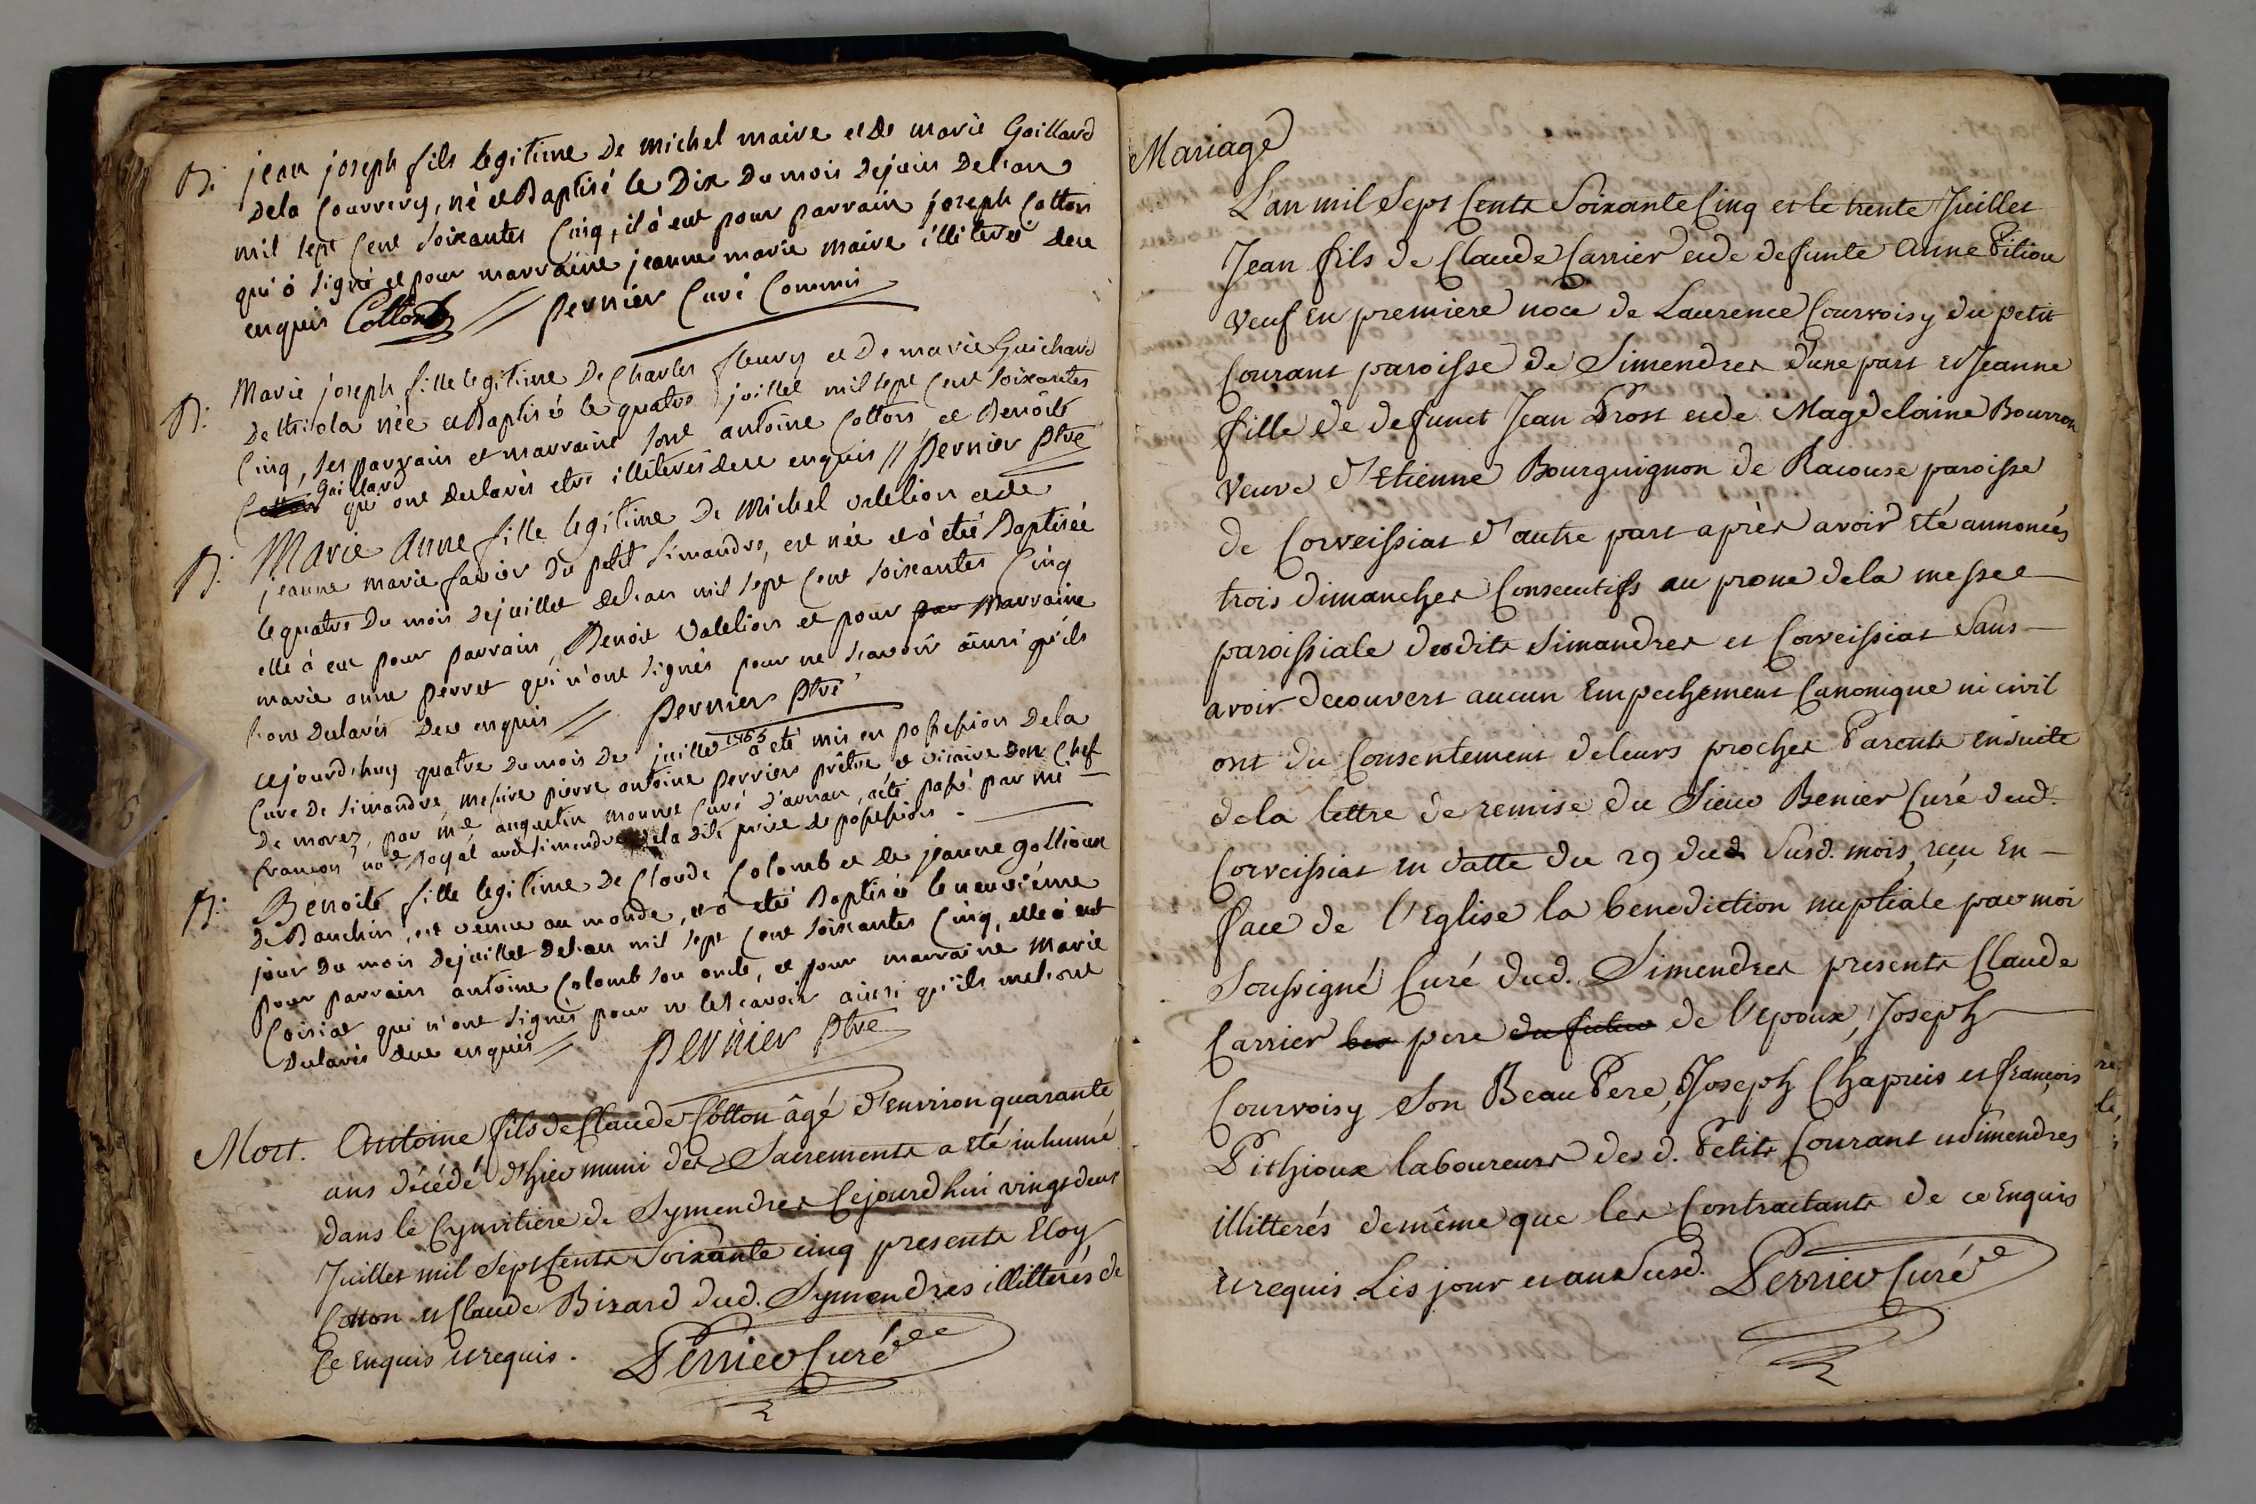 B. jean joseph fils legitime de michel maire et de marie Gaillard
dela Courverey, né et Baptisé le Dix du mois dejuin delan
mil sept cent soixantes Cinq, il à eut pour parrain joseph Cotton
qui à signé et pour marraine jeanne marie maire illiteré deu
enquis Cotton // pernier Curé Commis
B. Marie joseph fille legitime De Charles fleury et de marie Guichard
De née et Baptisé le quatre juillet mil sept Cent soixantes
Cinq, ses parrain et marraine sont antoine Cotton, et Benoite
Gaillard
Cotton qui ont declarés etre illiterés deu enquis // pernier ptre
B. Marie Anne fille legitime De Michel valelion et de
jeanne marie favier Du petit simandre, est née et à eté Baptisée
le quatre Du mois dejuillet delan mil sept Cent soixantes Cinq
elle à eut pour parrain, Benoit valelion et pour par Marraine
marie anne perret qui n'ont signés pour ne scavoir ainsi qu'ils
l'ont declarés deu enquis // pernier ptre
cejourd'huy quatre du mois de juillet 1765 a eté mis en possession dela
Cure de simandre, messire pierre antoine perrier prêtre et vicaire Den Chef
De morez, par mre augustin monnet Curé d'arnan, acte passé par me
francois nore royal aud simendre dela dite prise de possession.
B. Benoite fille legitime de Claude Colomb et de jeanne gollioux
de Bauchin, est venue au monde, et à eté Baptisée le neuviéme
jour du mois dejuillet delan mil sept Cent soixantes Cinq, elle à eut
pour parrain antoine Colomb son oncle, et pour marraine Marie
Coisiat qui n'ont signés pour ne le scavoir ainsi qu'ils me l'ont
declarés deu enquis // pernier ptre
Mort. Antoine fils de Claude Cotton âgé d'environ quarante
ans décédé d'hier muni des Sacrements a eté inhumé
dans le Cymitiere de Symendres Cejourdhui vingt deux
Juillet mil Sept Cents Soixante cinq presents Eloy
Cotton et Claude Bizard dud. Symendres illitterés de
Ce Enquis et requis. Perrier Curé
Mariage
L'an mil Sept Cents Soixante Cinq et le trente Juillet
Jean fils de Claude Carrier et de defunte Anne Pitiou
veuf en premiere noce de Laurence Courvoisy du petit
Courant paroisse de Simendres d'une part et Jeanne
fille de defunct Jean Prost et de Magdelaine Bourron
veuve d'Etienne Bourguignon de Racouse paroisse
de Corveissiat d'autre part après avoir eté annoncés
trois dimanches Consecutifs au prone dela messe
paroissiale desdits Simandres et Corveissiat Sans
avoir decouvert aucun Empechement Canonique ni civil
ont du Consentement deleurs proches Parents ensuite
dela lettre de remise du Sieur Benier Curé dud.
Corveissiat en datte du 29 dud Susd. mois, reçu En
face de l'Eglise la benediction nuptiale par moi
Soussigné Curé dud. Simendres presents Claude
Carrier pere du futur de l'epoux, Joseph
Courvoisy Son Beau Pere, Joseph Chapuis et françois
Pithioux laboureurs des d. Petits Courant et Simendres
illitterés demême que les Contractants de ce Enquis
et requis Les jour et an Susd. Perrier Curé